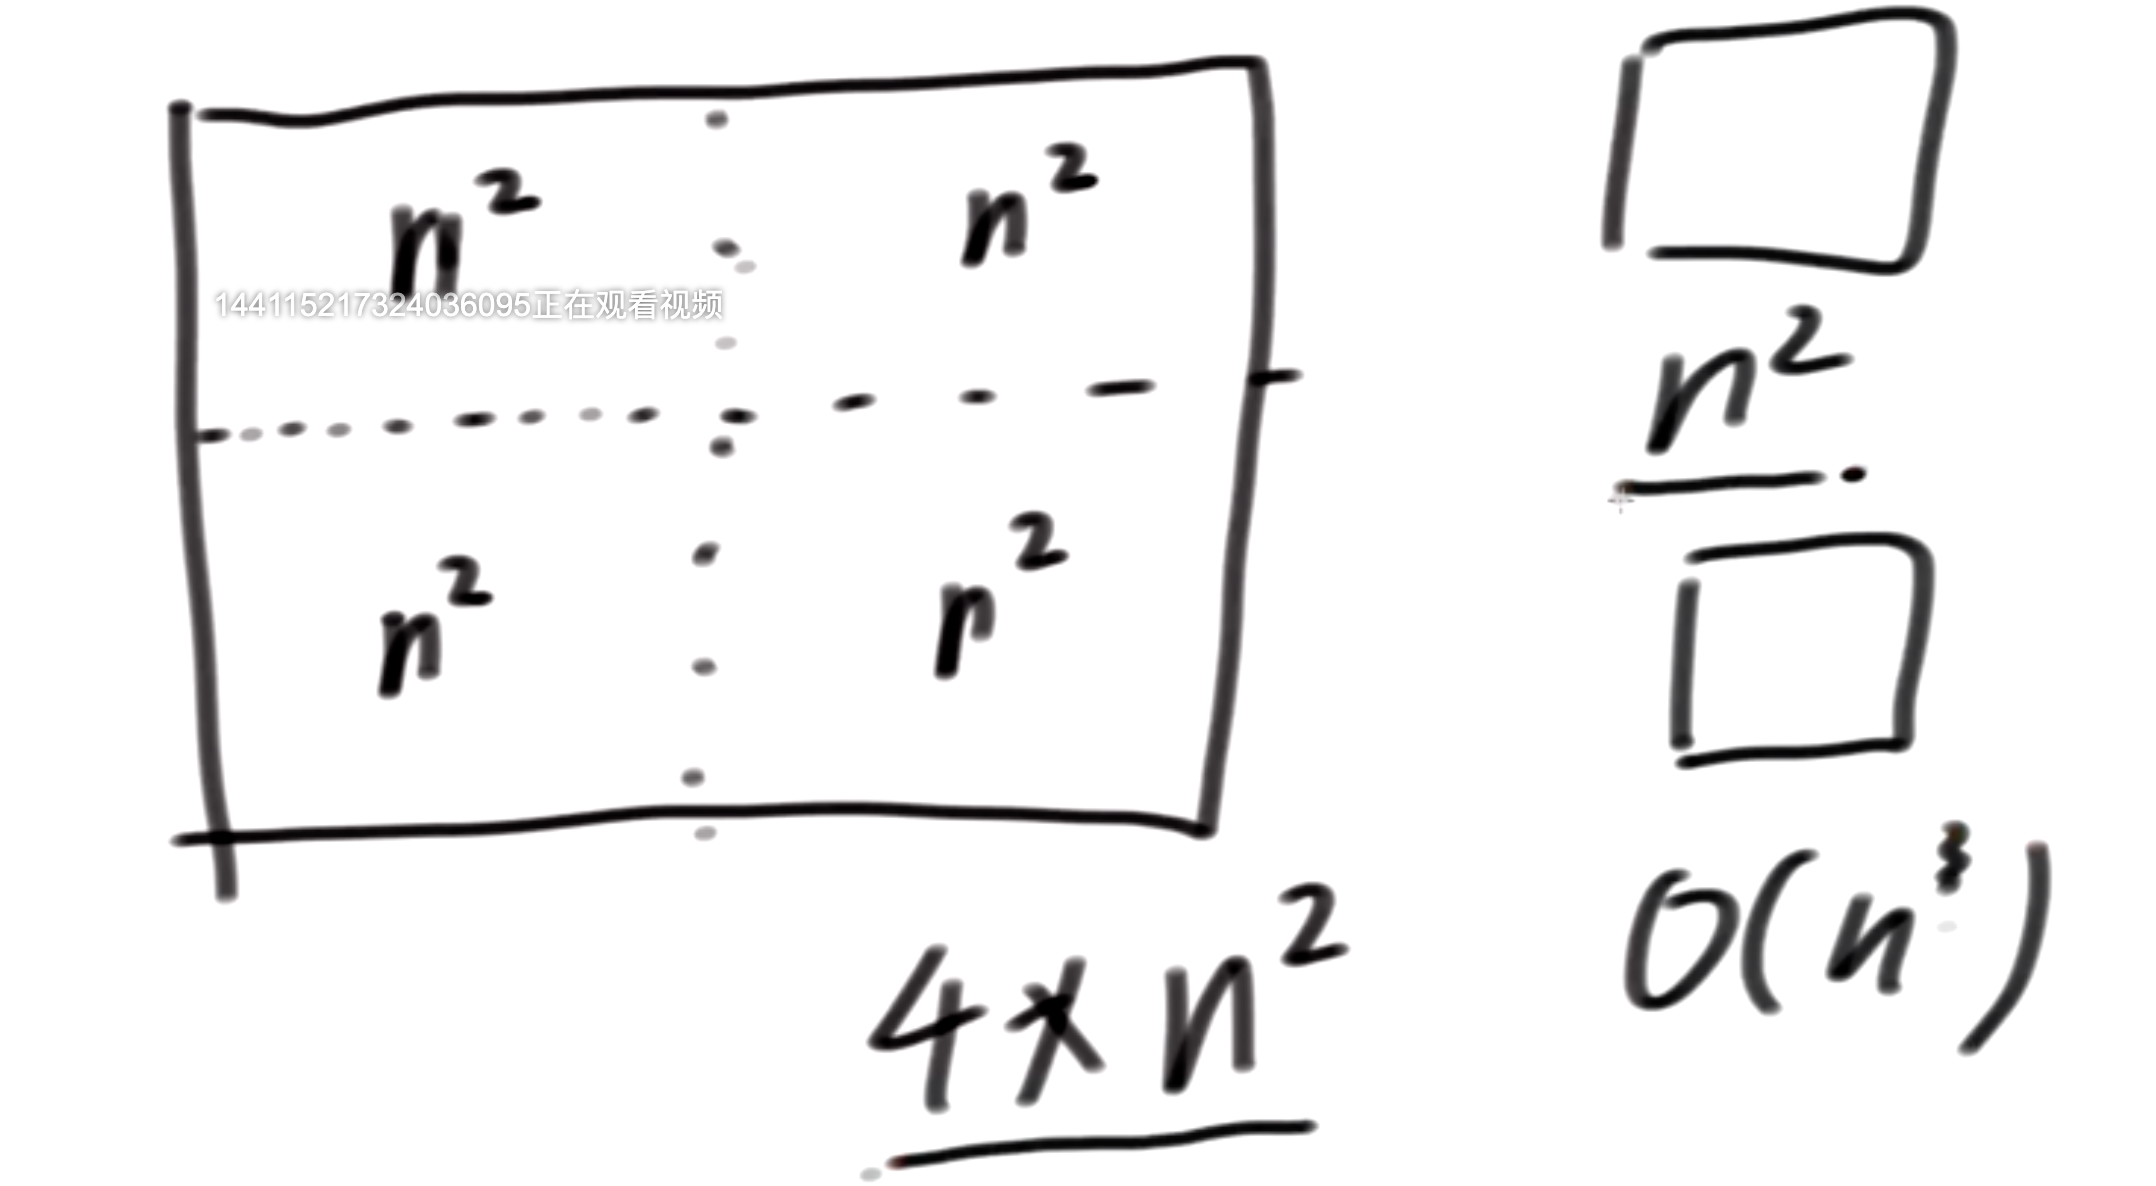 n² n²
144115217324036095正在观看视频
n² n²
4×n²
n²
O(n³)